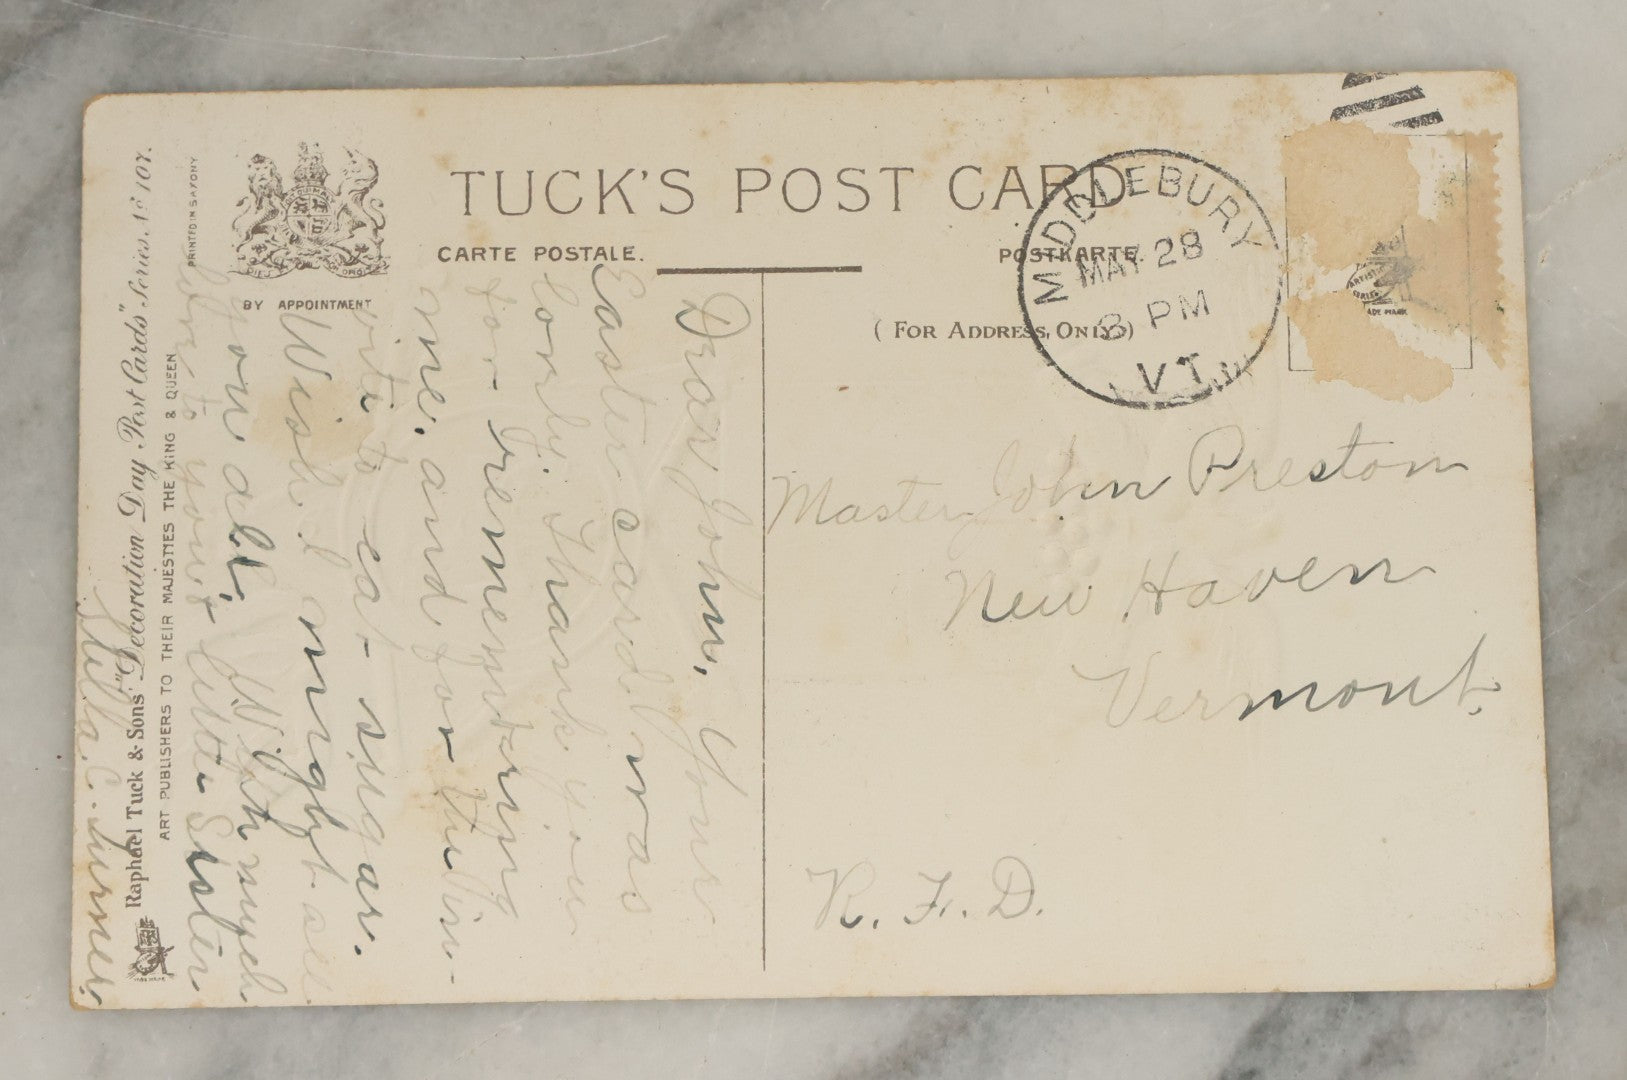 TUCK'S POST CARD
CARTE POSTALE.
POSTKARTE.
(FOR ADDRESS ONLY)
BY APPOINTMENT
PRINTED IN SAXONY
Raphael Tuck & Sons' "Decoration Day Post Cards" Series. No 107.
ART PUBLISHERS TO THEIR MAJESTIES THE KING & QUEEN
MIDDLEBURY
MAY 28
8 PM
VT.
Dear John, Your
Easter card was
lovely. Thank you
for remembering
me, and for the in-
vite to eat sugar.
Wish I might see
you all. With much
love to your little Sister
Stella C. Turner.
Master John Preston
New Haven
Vermont.
R. F. D.